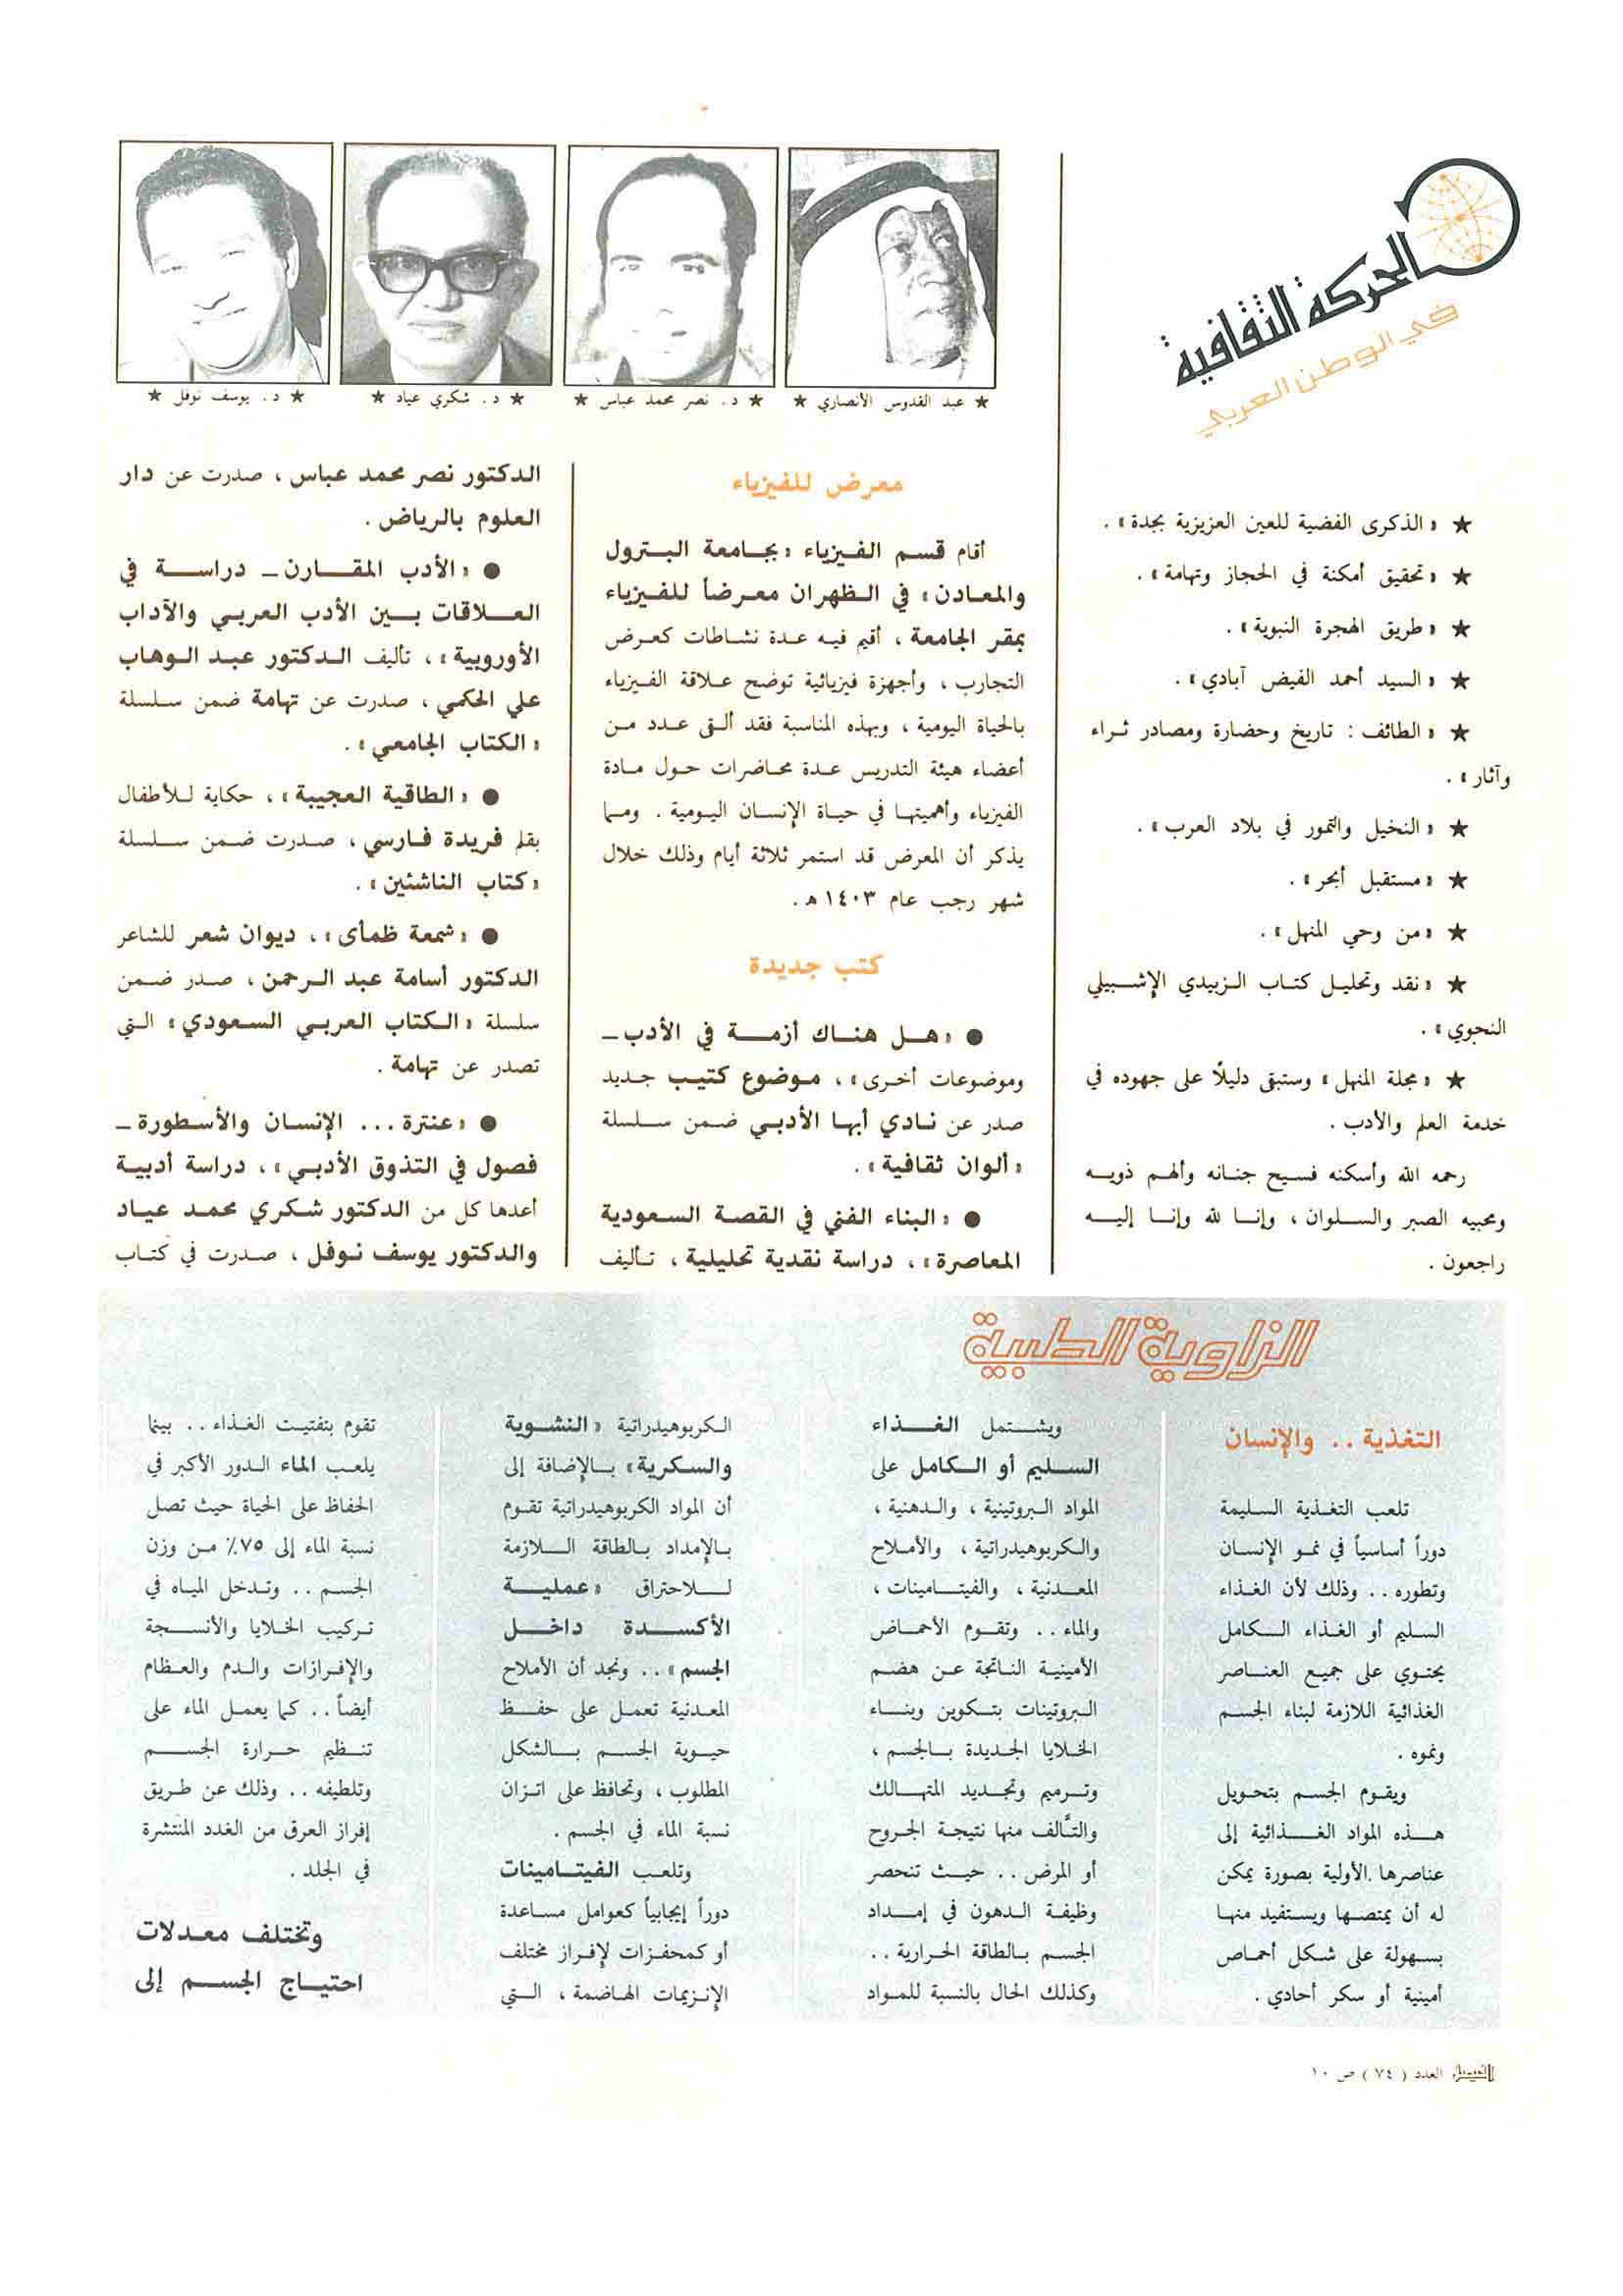 الحركة الثقافية
في الوطن العربي
★ عبد القدوس الأنصاري ★
★ د. نصر محمد عباس ★
★ د. شكري عياد ★
★ د. يوسف نوفل ★
★ «الذكرى الفضية للعين العزيزية بجدة».
★ «تحقيق أمكنة في الحجاز وتهامة».
★ «طريق الهجرة النبوية».
★ «السيد أحمد الفيض آبادي».
★ «الطائف : تاريخ وحضارة ومصادر ثراء
وآثار».
★ «النخيل والتمور في بلاد العرب».
★ «مستقبل أبحر».
★ «من وحي المنهل».
★ «نقد وتحليل كتاب الزبيدي الإشبيلي
النحوي».
★ «مجلة المنهل» وستبقى دليلاً على جهوده في
خدمة العلم والأدب .
رحمه الله وأسكنه فسيح جنانه وألهم ذويه
ومحبيه الصبر والسلوان ، وإنا لله وإنا إليه
راجعون .
معرض للفيزياء
أقام قسم الفيزياء «بجامعة البترول
والمعادن» في الظهران معرضاً للفيزياء
بمقر الجامعة ، أقيم فيه عدة نشاطات كعرض
التجارب ، وأجهزة فيزيائية توضح علاقة الفيزياء
بالحياة اليومية ، وبهذه المناسبة فقد ألقى عدد من
أعضاء هيئة التدريس عدة محاضرات حول مادة
الفيزياء وأهميتها في حياة الإنسان اليومية . ومما
يذكر أن المعرض قد استمر ثلاثة أيام وذلك خلال
شهر رجب عام ١٤٠٣ هـ.
كتب جديدة
● «هل هناك أزمة في الأدب –
وموضوعات أخرى» ، موضوع كتيب جديد
صدر عن نادي أبها الأدبي ضمن سلسلة
«ألوان ثقافية».
● «البناء الفني في القصة السعودية
المعاصرة» ، دراسة نقدية تحليلية ، تأليف
الدكتور نصر محمد عباس ، صدرت عن دار
العلوم بالرياض .
● «الأدب المقارن – دراسة في
العلاقات بين الأدب العربي والآداب
الأوروبية» ، تأليف الدكتور عبد الوهاب
علي الحكمي ، صدرت عن تهامة ضمن سلسلة
«الكتاب الجامعي».
● «الطاقية العجيبة» ، حكاية للأطفال
بقلم فريدة فارسي ، صدرت ضمن سلسلة
«كتاب الناشئين».
● «شمعة ظمأى» ، ديوان شعر للشاعر
الدكتور أسامة عبد الرحمن ، صدر ضمن
سلسلة «الكتاب العربي السعودي» التي
تصدر عن تهامة .
● «عنترة ... الإنسان والأسطورة –
فصول في التذوق الأدبي» ، دراسة أدبية
أعدها كل من الدكتور شكري محمد عياد
والدكتور يوسف نوفل ، صدرت في كتاب
الزاوية الطبية
التغذية .. والإنسان
تلعب التغذية السليمة
دوراً أساسياً في نمو الإنسان
وتطوره .. وذلك لأن الغذاء
السليم أو الغذاء الكامل
يحتوي على جميع العناصر
الغذائية اللازمة لبناء الجسم
ونموه .
ويقوم الجسم بتحويل
هذه المواد الغذائية إلى
عناصرها الأولية بصورة يمكن
له أن يمتصها ويستفيد منها
بسهولة على شكل أحماص
أمينية أو سكر أحادي .
ويشتمل الغذاء
السليم أو الكامل على
المواد البروتينية ، والدهنية ،
والكربوهيدراتية ، والأملاح
المعدنية ، والفيتامينات ،
والماء .. وتقوم الأحماض
الأمينية الناتجة عن هضم
البروتينات بتكوين وبناء
الخلايا الجديدة بالجسم ،
وترميم وتجديد المتهالك
والتَّالف منها نتيجة الجروح
أو المرض .. حيث تنحصر
وظيفة الدهون في إمداد
الجسم بالطاقة الحرارية ..
وكذلك الحال بالنسبة للمواد
الكربوهيدراتية «النشوية
والسكرية» بالإضافة إلى
أن المواد الكربوهيدراتية تقوم
بالإمداد بالطاقة اللازمة
للاحتراق «عملية
الأكسدة داخل
الجسم» .. ونجد أن الأملاح
المعدنية تعمل على حفظ
حيوية الجسم بالشكل
المطلوب ، وتحافظ على اتزان
نسبة الماء في الجسم .
وتلعب الفيتامينات
دوراً إيجابياً كعوامل مساعدة
أو كمحفزات لإفراز مختلف
الإنزيمات الهاضمة ، التي
تقوم بتفتيت الغذاء .. بينما
يلعب الماء الدور الأكبر في
الحفاظ على الحياة حيث تصل
نسبة الماء إلى ٧٥٪ من وزن
الجسم .. وتدخل المياه في
تركيب الخلايا والأنسجة
والإفرازات والدم والعظام
أيضاً .. كما يعمل الماء على
تنظيم حرارة الجسم
وتلطيفه .. وذلك عن طريق
إفراز العرق من الغدد المنتشرة
في الجلد .
وتختلف معدلات
احتياج الجسم إلى
الفيصل العدد (٧٤) ص ١٠